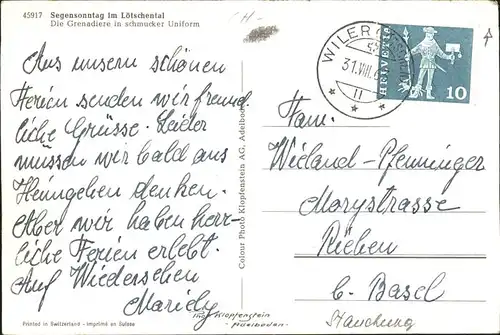 45917 Segensonntag im Lötschental
Die Grenadiere in schmucker Uniform
CH-
Aus unsern schönen
Ferien senden wir freund
liche Grüsse. Leider
müssen wir bald ans
Heimgehen denken.
Aber wir haben herr-
liche Ferien erlebt.
Auf Wiedersehen
Mariely
Klopfenstein
- Adelboden -
Printed in Switzerland - Imprimé en Suisse
Colour Photo Klopfenstein AG, Adelboden
WILER
31.VIII.6
HELVETIA
10
Fam.
Wieland-Pfenninger
Morystrasse
Riehen
b. Basel